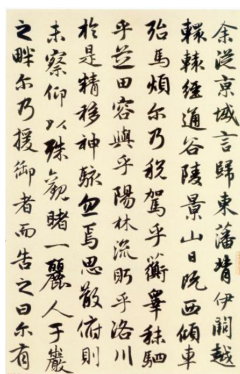 余從京城言歸東藩背伊闕越
轘轅經通谷陵景山日既西傾車
殆馬煩尔乃稅駕乎蘅皋秣駟
乎芝田容與乎陽林流眄乎洛川
於是精移神駭忽焉思散俯則
未察仰以殊觀睹一麗人于巖
之畔尔乃援御者而告之曰尔有